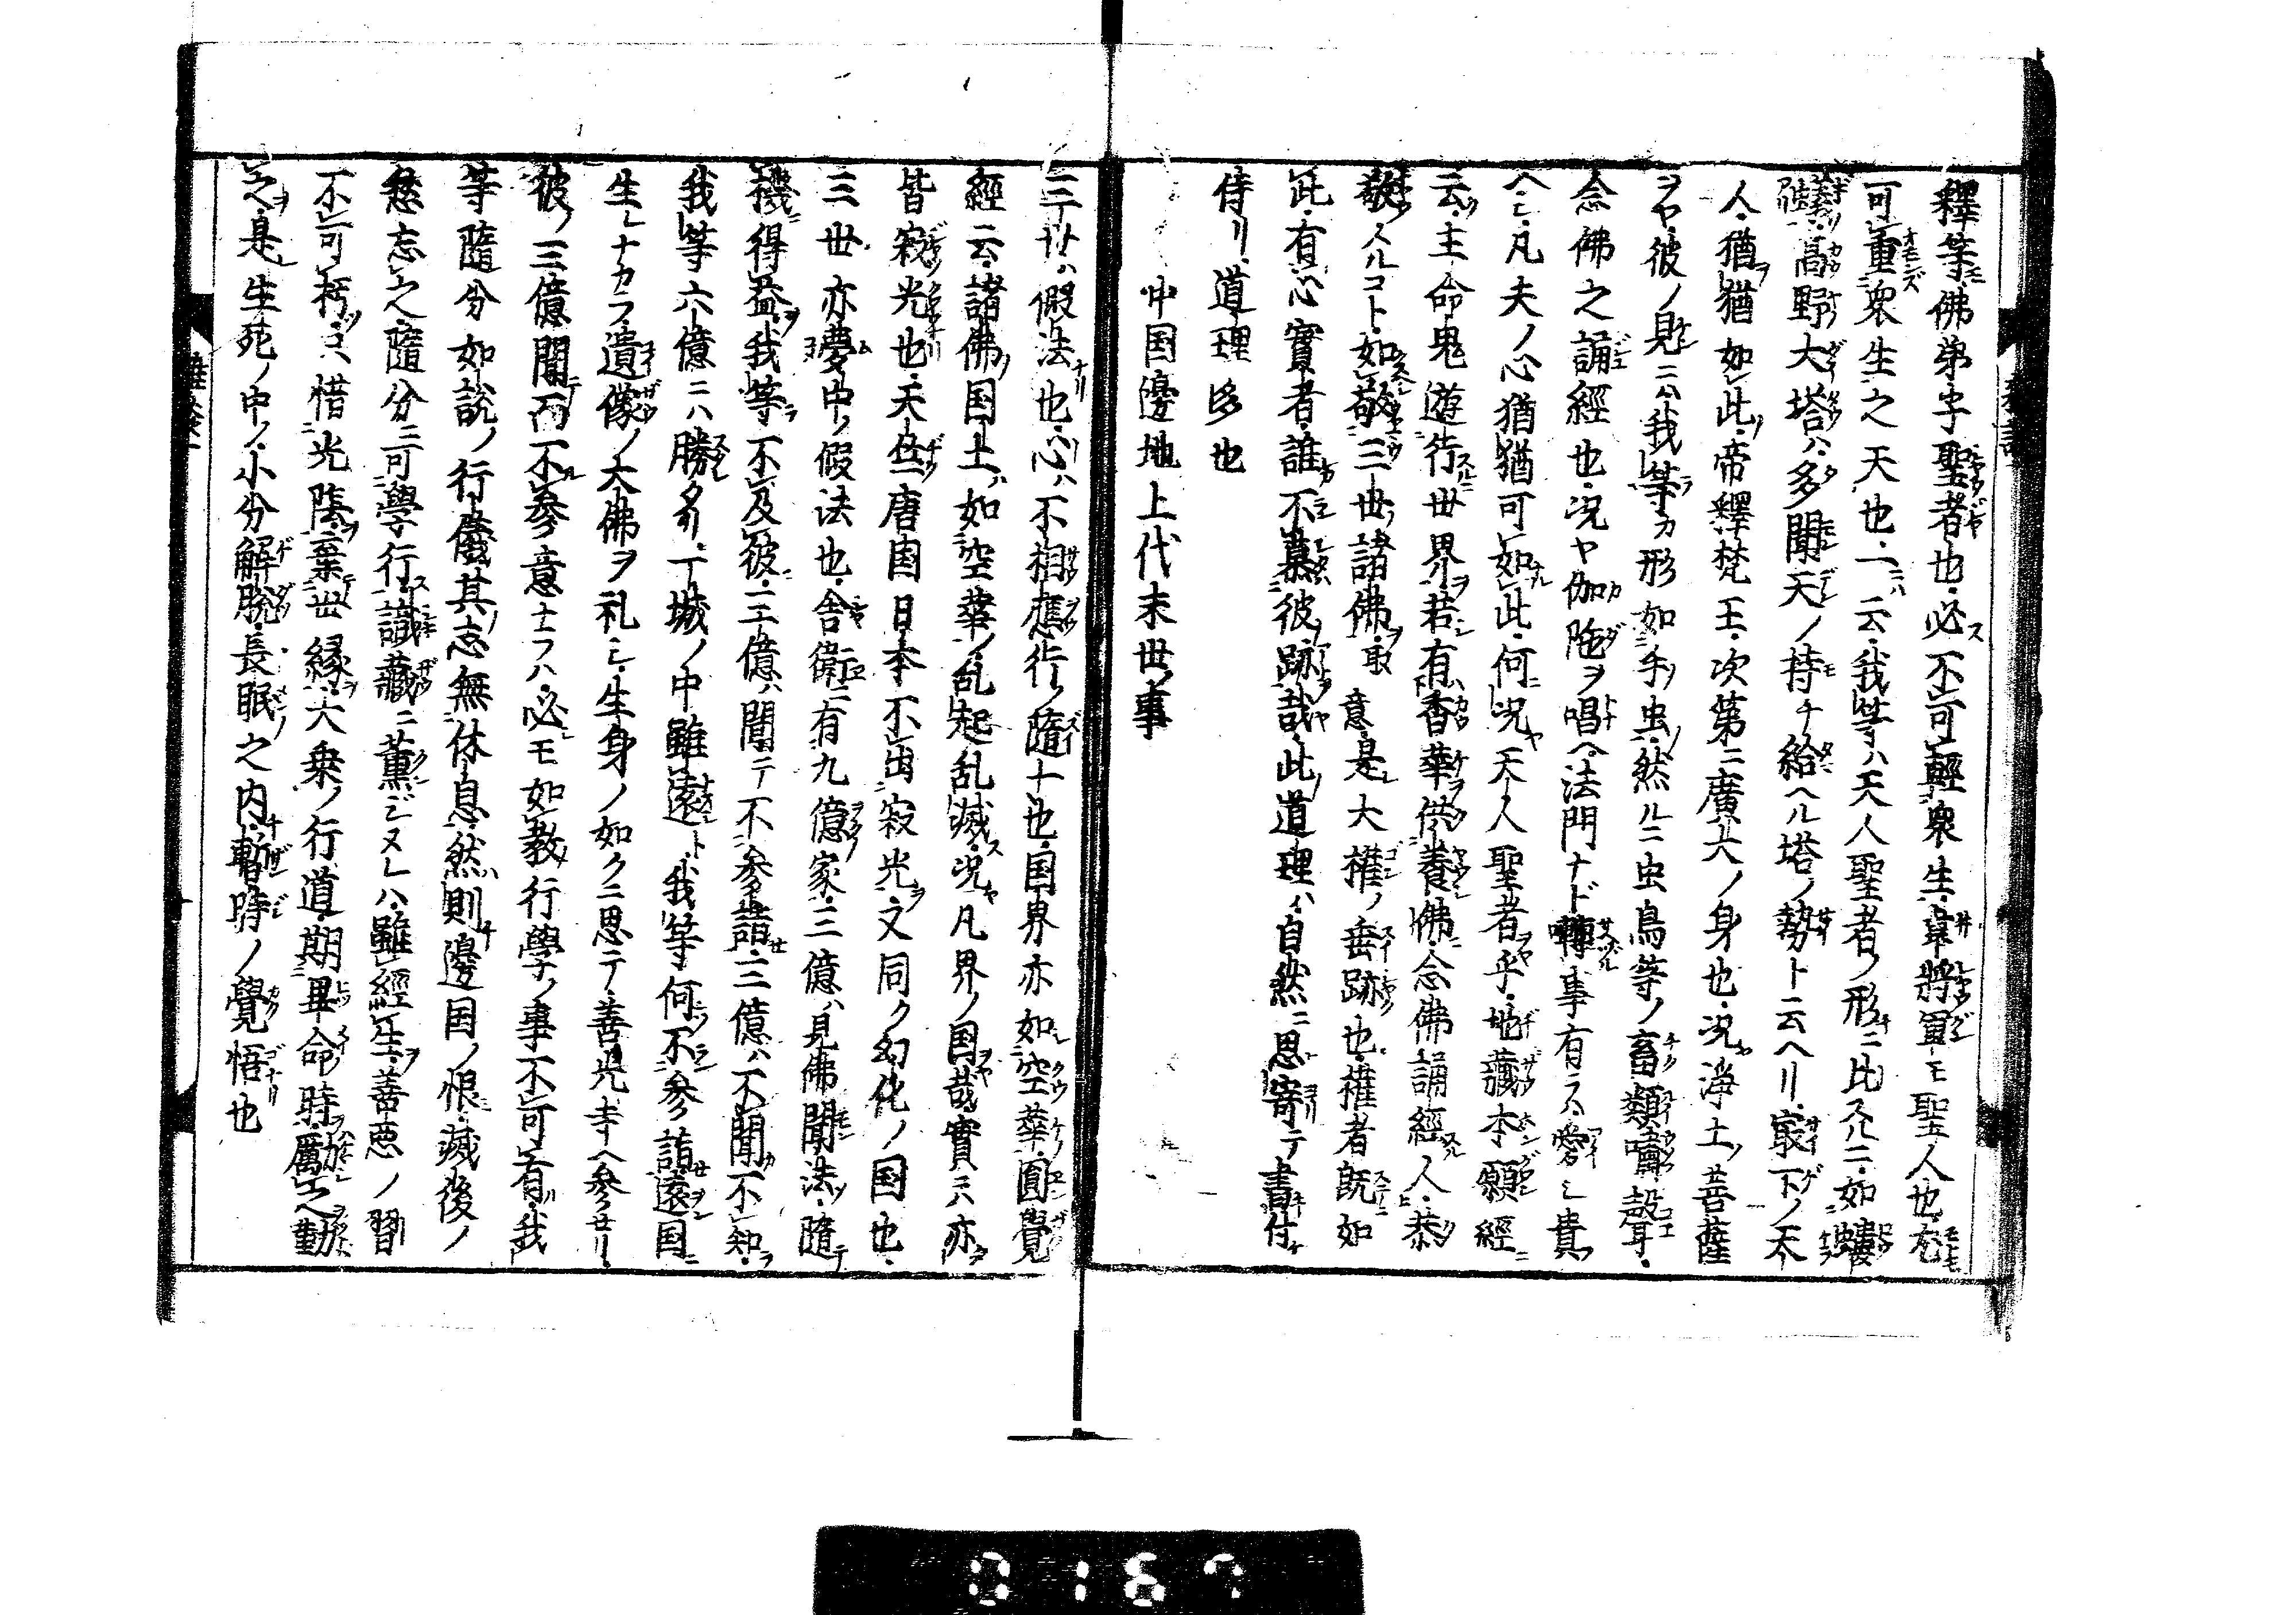 釋等モ佛弟子聖者也必ス不可輕衆生韋將軍モ聖人也尤モ
可重衆生之天也一ニハ云我等ハ天人聖者ノ形ニ比スルニ如螻
蟻高野大塔ハ多聞天ノ持チ給ヘル塔ノ勢ト云ヘリ最下ノ天
人猶猶如此帝釋梵王次第ニ廣大ノ身也況淨土ノ菩薩
ヲヤ彼ノ見ニハ我等カ形如手ノ虫然ルニ虫鳥等ノ畜類囀聲
念佛之誦經也況ヤ伽陀ヲ唱ヘ法門ナド囀事有ラハ愛シ貴
ヘシ凡夫ノ心猶猶可如此何況天人聖者乎地藏本願經ニ
云主命鬼遊行世界若有香華供養佛念佛誦經人恭
敬スルコト如敬三世諸佛取意是大權ノ垂跡也權者既如
此有心實者誰不慕彼跡哉此道理ハ自然ニ思寄テ書付
侍リ道理多也
中国邊地上代末世ノ事
三世ハ假法也心ハ不相應行ノ隨一也国界亦如空華圓覺
經云諸佛国土如空華ノ乱起乱滅況凡界ノ国哉實ニハ亦
皆寂光也天竺唐国日本不出寂光ヲ又同ク幻化ノ国也
三世亦夢中ノ假法也舍衛ニ有九億家三億ハ見佛聞法隨
機得益我等不及彼ニ三億ハ聞テ不參詣三億ハ不聞不知
我等六億ニハ勝タリ一城ノ中雖遠ト我等何不參詣遠国ニ
生レナカラ遺像ノ大佛ヲ礼シ生身ノ如クニ思テ善光寺ヘ參セリ
彼ノ三億聞而不參意ナラハ必モ如教行學ノ事不可有我
等隨分如説ノ行儀其志無休息然則邊国ノ恨滅後ノ
愁忘之隨分ニ可學行識藏ニ薫ジヌレハ雖經生善惡ノ習
不可朽只惜光陰棄世縁大乗ノ行道期畢命時勵之勤
之是生死ノ中ノ小分解脱長眠之内暫時ノ覺悟也
0167